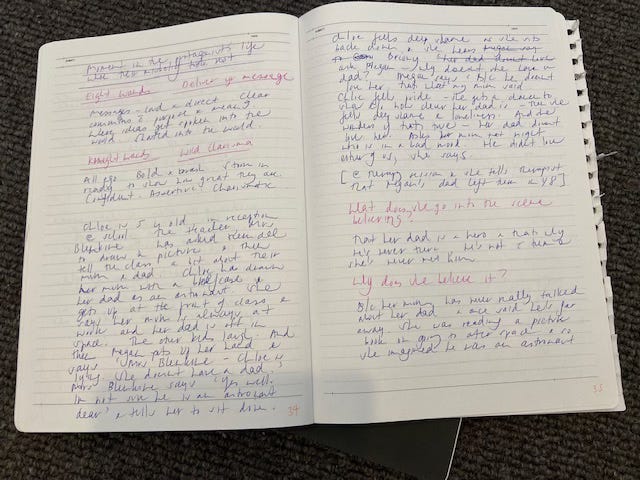 Moment in the protagonist's life
Eight Words Deliver yr message
Message - Loud & direct clear
communication & purpose & meaning.
where ideas get spoken into the
world. Shouted into the world.
Wild Charisma
All go Bold & brash Storm in
ready to show how great they are.
Confident. Assertive. Charismatic
Chloe is 5 yr old, in reception
@ school. The teacher, Mrs
Blenkine has asked them all
to draw a picture & then
tell the class a bit about their
mum & dad. Chloe has drawn
her mum with a briefcase &
her dad as an astronaut. She
gets up at the front of class, &
says her mum is always at
work and her dad is lost in
space. The other kids laugh. And
then Megan puts up her hand &
says "Mrs Blenkine - Chloe is
lying. She doesn't have a dad."
Mrs Blenkine says "Yes well.
I'm not sure he is an astronaut
dear" & tells her to sit down.
34
Chloe feels deep shame as she sits
back down & she hears
to Briony her dad doesn't love
ask Megan - why doesn't she have a
dad? Megan says b/c he doesn't
love her, that what my mum said
Chloe feels pride - she gets a chance to
show off how clever her dad is - then she
feels deep shame & loneliness. And she
wonders if that's true - her dad doesn't
love her. Asks her mum that night
who is in a bad mood. He didn't love
either of us, she says.
[@ therapy session & she tells therapist
that Megan's dad left them in Y8]
What does she go into the scene
believing?
That her dad is a hero & that's why
he's never there. He's not & then
she's never met him.
Why does she believe it?
B/c her mummy has never really talked
about her dad & once said he's far
away. She was reading a picture
book on going to outer space & so
she imagined he was an astronaut
35